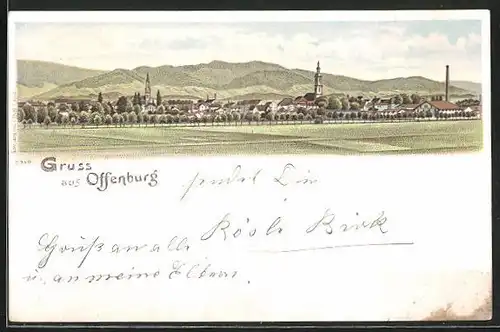 Gruss
aus Offenburg
sendet Dir
Rösle Birk
Gruß an alle
u. an meine Eltern.